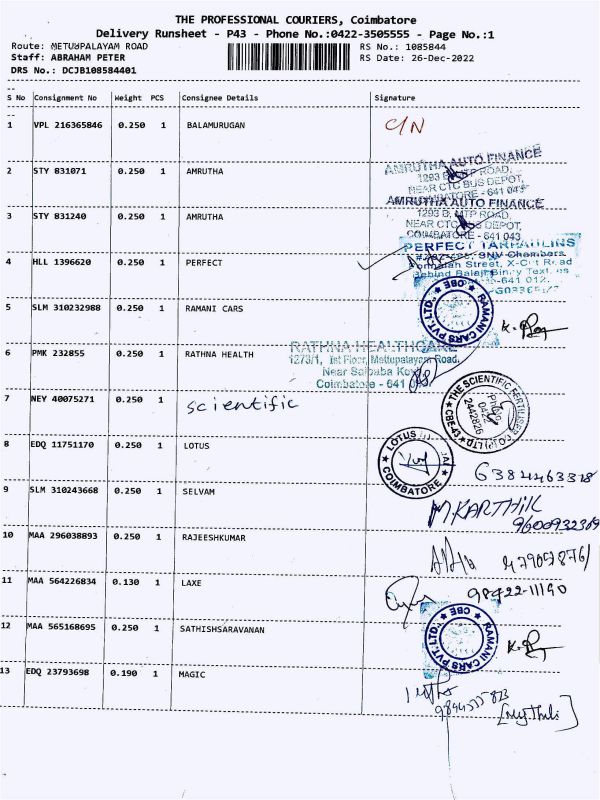 THE PROFESSIONAL COURIERS, Coimbatore
Delivery Runsheet - P43 - Phone No.:0422-3505555 - Page No.:1
Route: METUPALAYAM ROAD
RS No.: 1085844
Staff: ABRAHAM PETER
RS Date: 26-Dec-2022
DRS No.: DCJB108584401
S No Consignment No Weight PCS Consignee Details Signature
1 VPL 216365846 0.250 1 BALAMURUGAN C/N
2 STY 831071 0.250 1 AMRUTHA
AMRUTHA AUTO FINANCE
1293 B, MTP ROAD,
NEAR CTC BUS DEPOT,
COIMBATORE - 641 043
3 STY 831240 0.250 1 AMRUTHA
AMRUTHA AUTO FINANCE
1293 B, MTP ROAD,
NEAR CTC BUS DEPOT,
COIMBATORE - 641 043
4 HLL 1396620 0.250 1 PERFECT
PERFECT TARPAULINS
SNV Chambers
Street, X-Cut Road
Behind Balaji
641 012.
5 SLM 310232988 0.250 1 RAMANI CARS
RAMANI CARS PVT. LTD. CBE
6 PMK 232855 0.250 1 RATHNA HEALTH
RATHNA HEALTHCARE
1273/1, Ist Floor, Mettupalayam Road,
Near Saibaba Kovil
Coimbatore - 641
7 NEY 40075271 0.250 1 scientific
THE SCIENTIFIC FERTILISER CO (P) LTD CBE-43
Ph No
0422
2442826
8 EDQ 11751170 0.250 1 LOTUS
LOTUS
COIMBATORE
6384463328
9 SLM 310243668 0.250 1 SELVAM
M. KARTHIK
9600932309
10 MAA 296038893 0.250 1 RAJEESHKUMAR
11 MAA 564226834 0.130 1 LAXE
98422-11190
12 MAA 565168695 0.250 1 SATHISHSARAVANAN
RAMANI CARS PVT. LTD. CBE
13 EDQ 23793698 0.190 1 MAGIC
[Mythili]